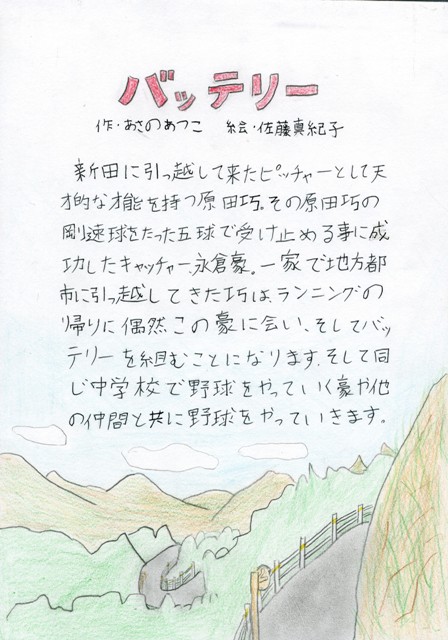 バッテリー
作・あさのあつこ 絵・佐藤真紀子
新田に引っ越して来たピッチャーとして天
才的な才能を持つ原田巧。その原田巧の
剛速球をたった五球で受け止める事に成
功したキャッチャー、永倉豪。一家で地方都
市に引っ越してきた巧は、ランニングの
帰りに偶然この豪に会い、そしてバッ
テリーを組むことになります。そして同
じ中学校で野球をやっていく豪や他
の仲間と共に野球をやっていきます。